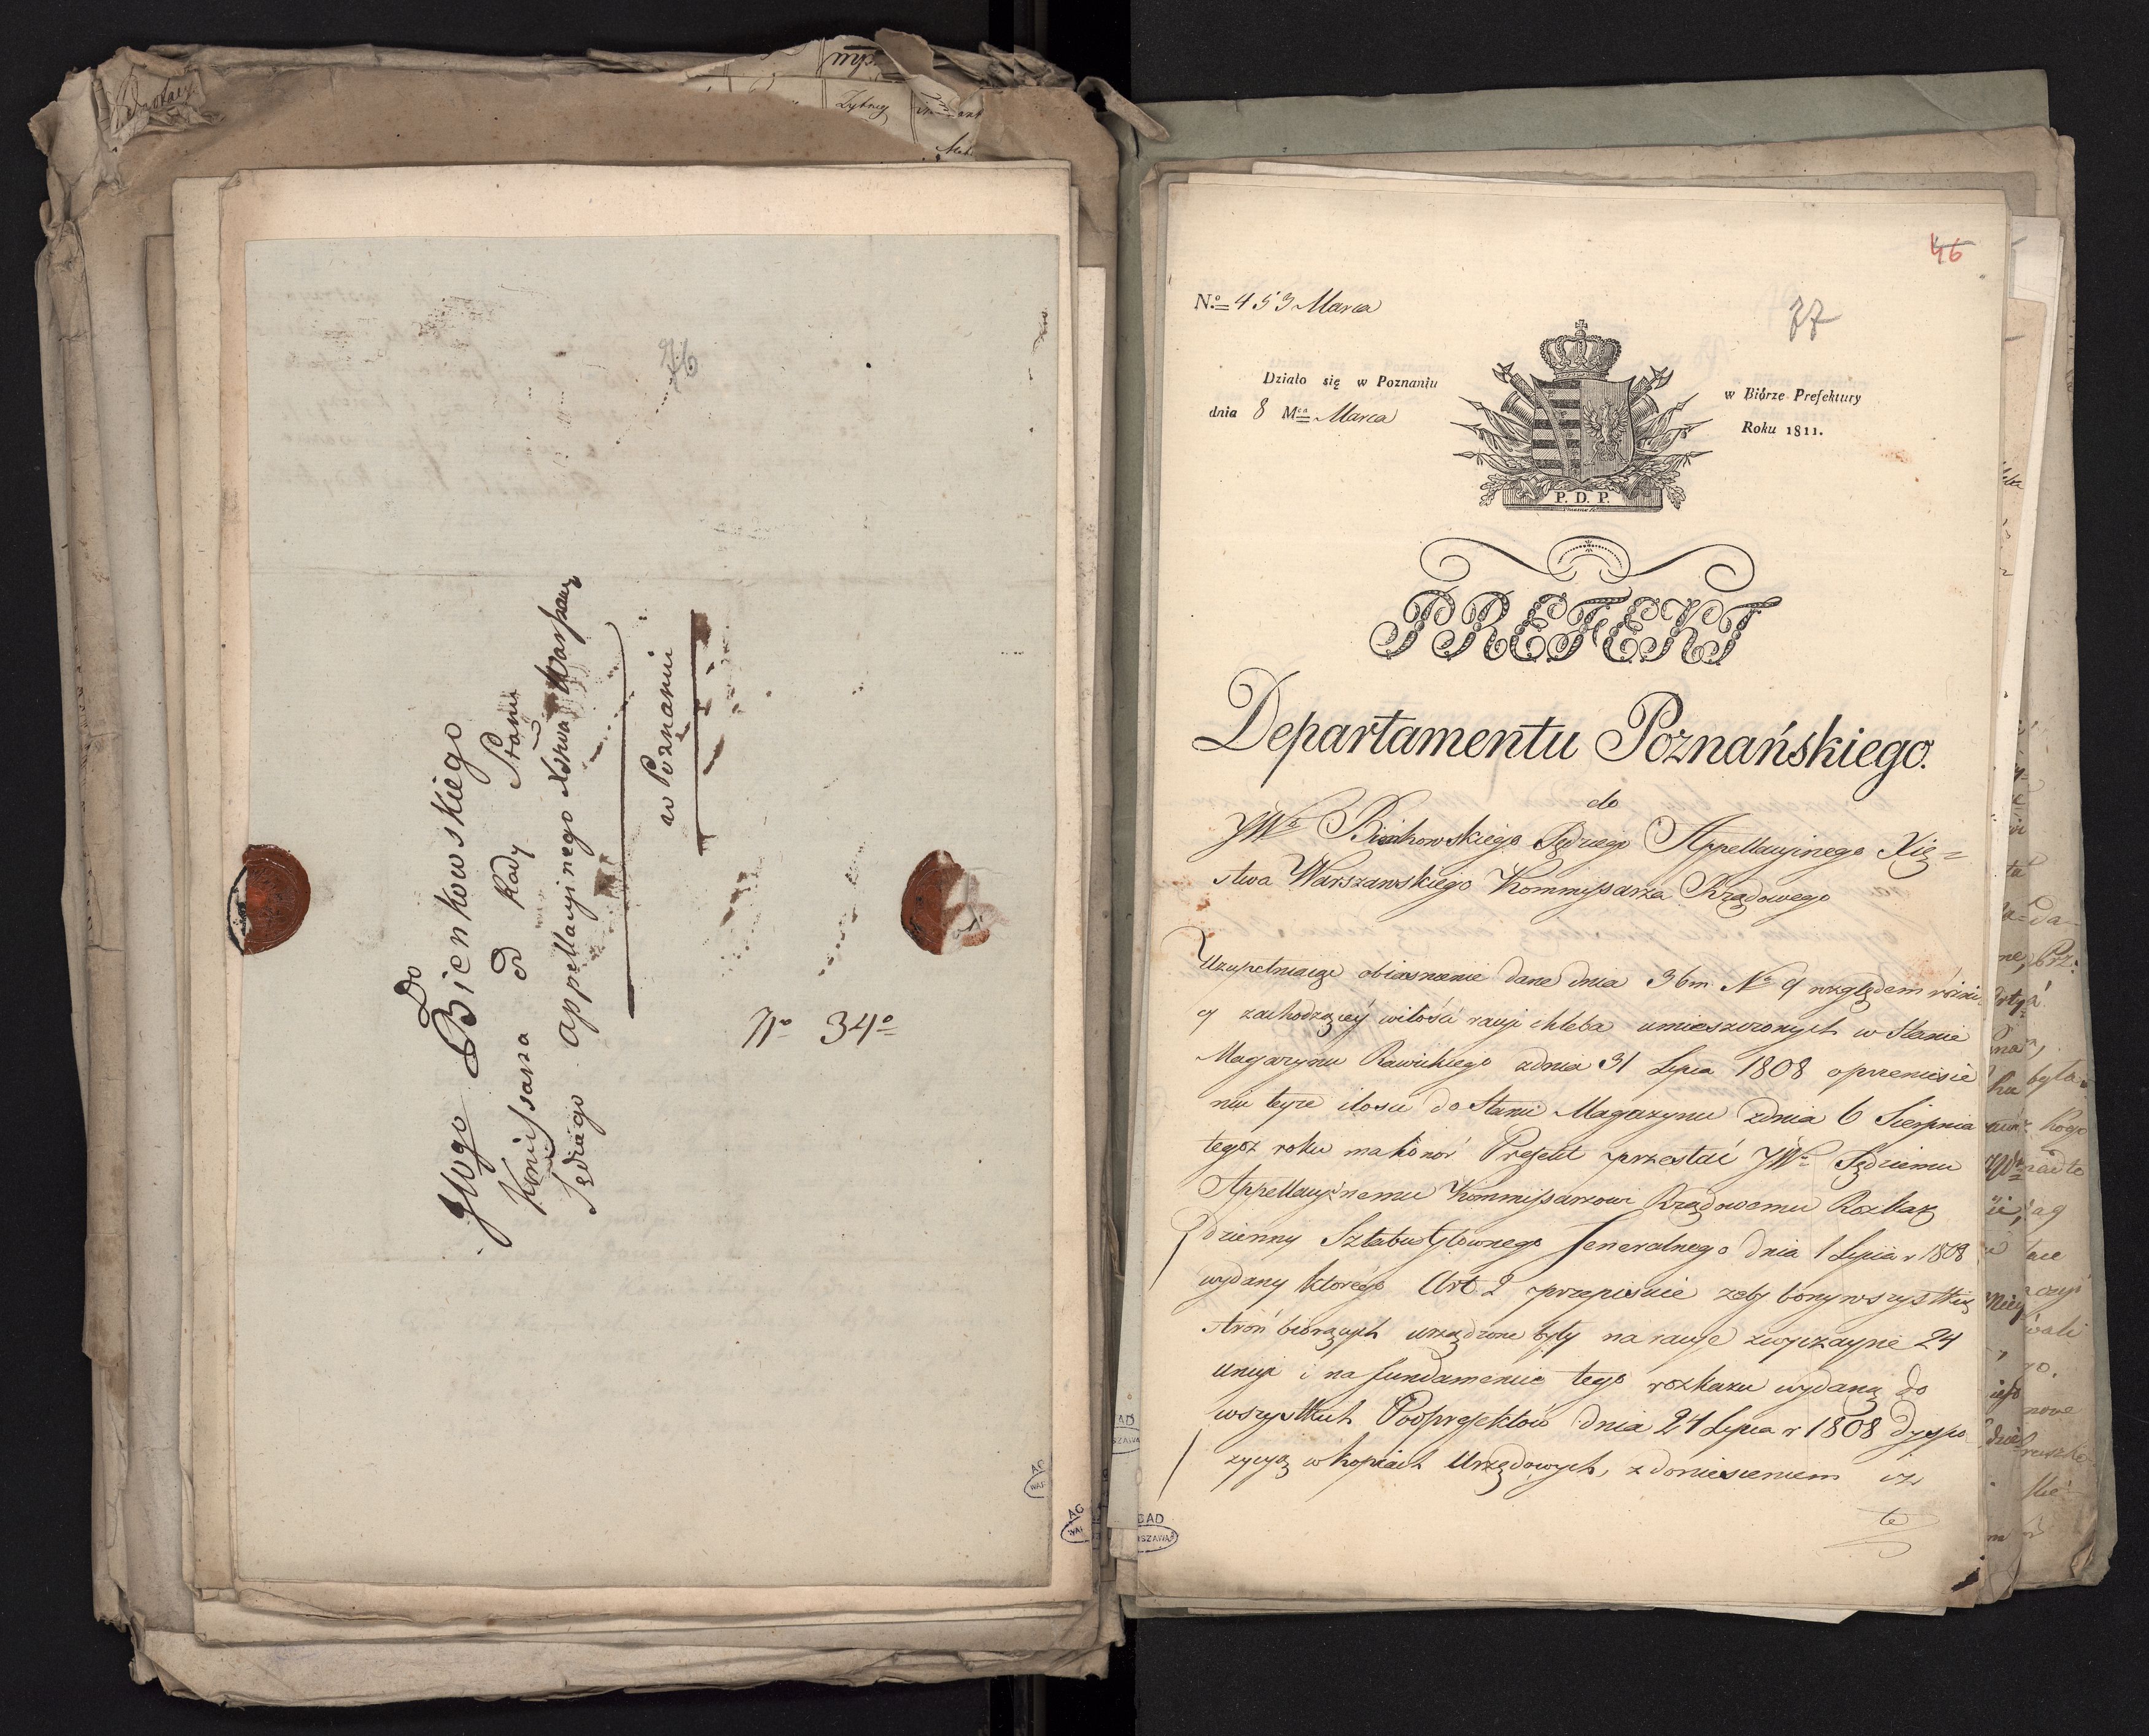 76
Do
JWgo Bienkowskiego
Komissarza od Rady Stanu
Sędziego appellacyinego Xstwa Warszaw
w Poznaniu
No 34o
46
77
No 453 Marca
Działo się w Poznaniu
w Biórze Prefektury
dnia 8 Mca Marca
Roku 1811.
P. D. P.
PREFEKT
Departamentu Poznańskiego.
do
JWo Bienkowskiego Sędziego Appellacyinego Xię=
stwa Warszawskiego Kommissarza Rządowego
Uzupełniaiąc obiasnienie dane dnia 3 bm No 9 względem różni
cy zachodzącéy w ilości racyi chleba umieszczonych w Stanie
Magazynu Rawickiego z dnia 31 Lipca 1808 o przeniesie
niu teyże ilości do Stanu Magazynu z dnia 6 Sierpnia
tegoż roku ma honor Prefekt przesłać JWo Sędziemu
Appellacyinemu Kommissarzowi Rządowemu Rozkaz
dzienny Sztabu Głownego Jeneralnego dnia 1 Lipca r 1808
wydany którego Art. 2 przepisuie żeby bony wszystkich
stron biorących urządzone były na racye zwyczayne 24
uncyi i na fundamencie tego rozkazu wydaną do
wszystkich Podprefektów dnia 21 Lipca r 1808 dyspo
zycyą w kopiach Urzędowych, z doniesieniem iż
te
AGAD
WARSZAWA